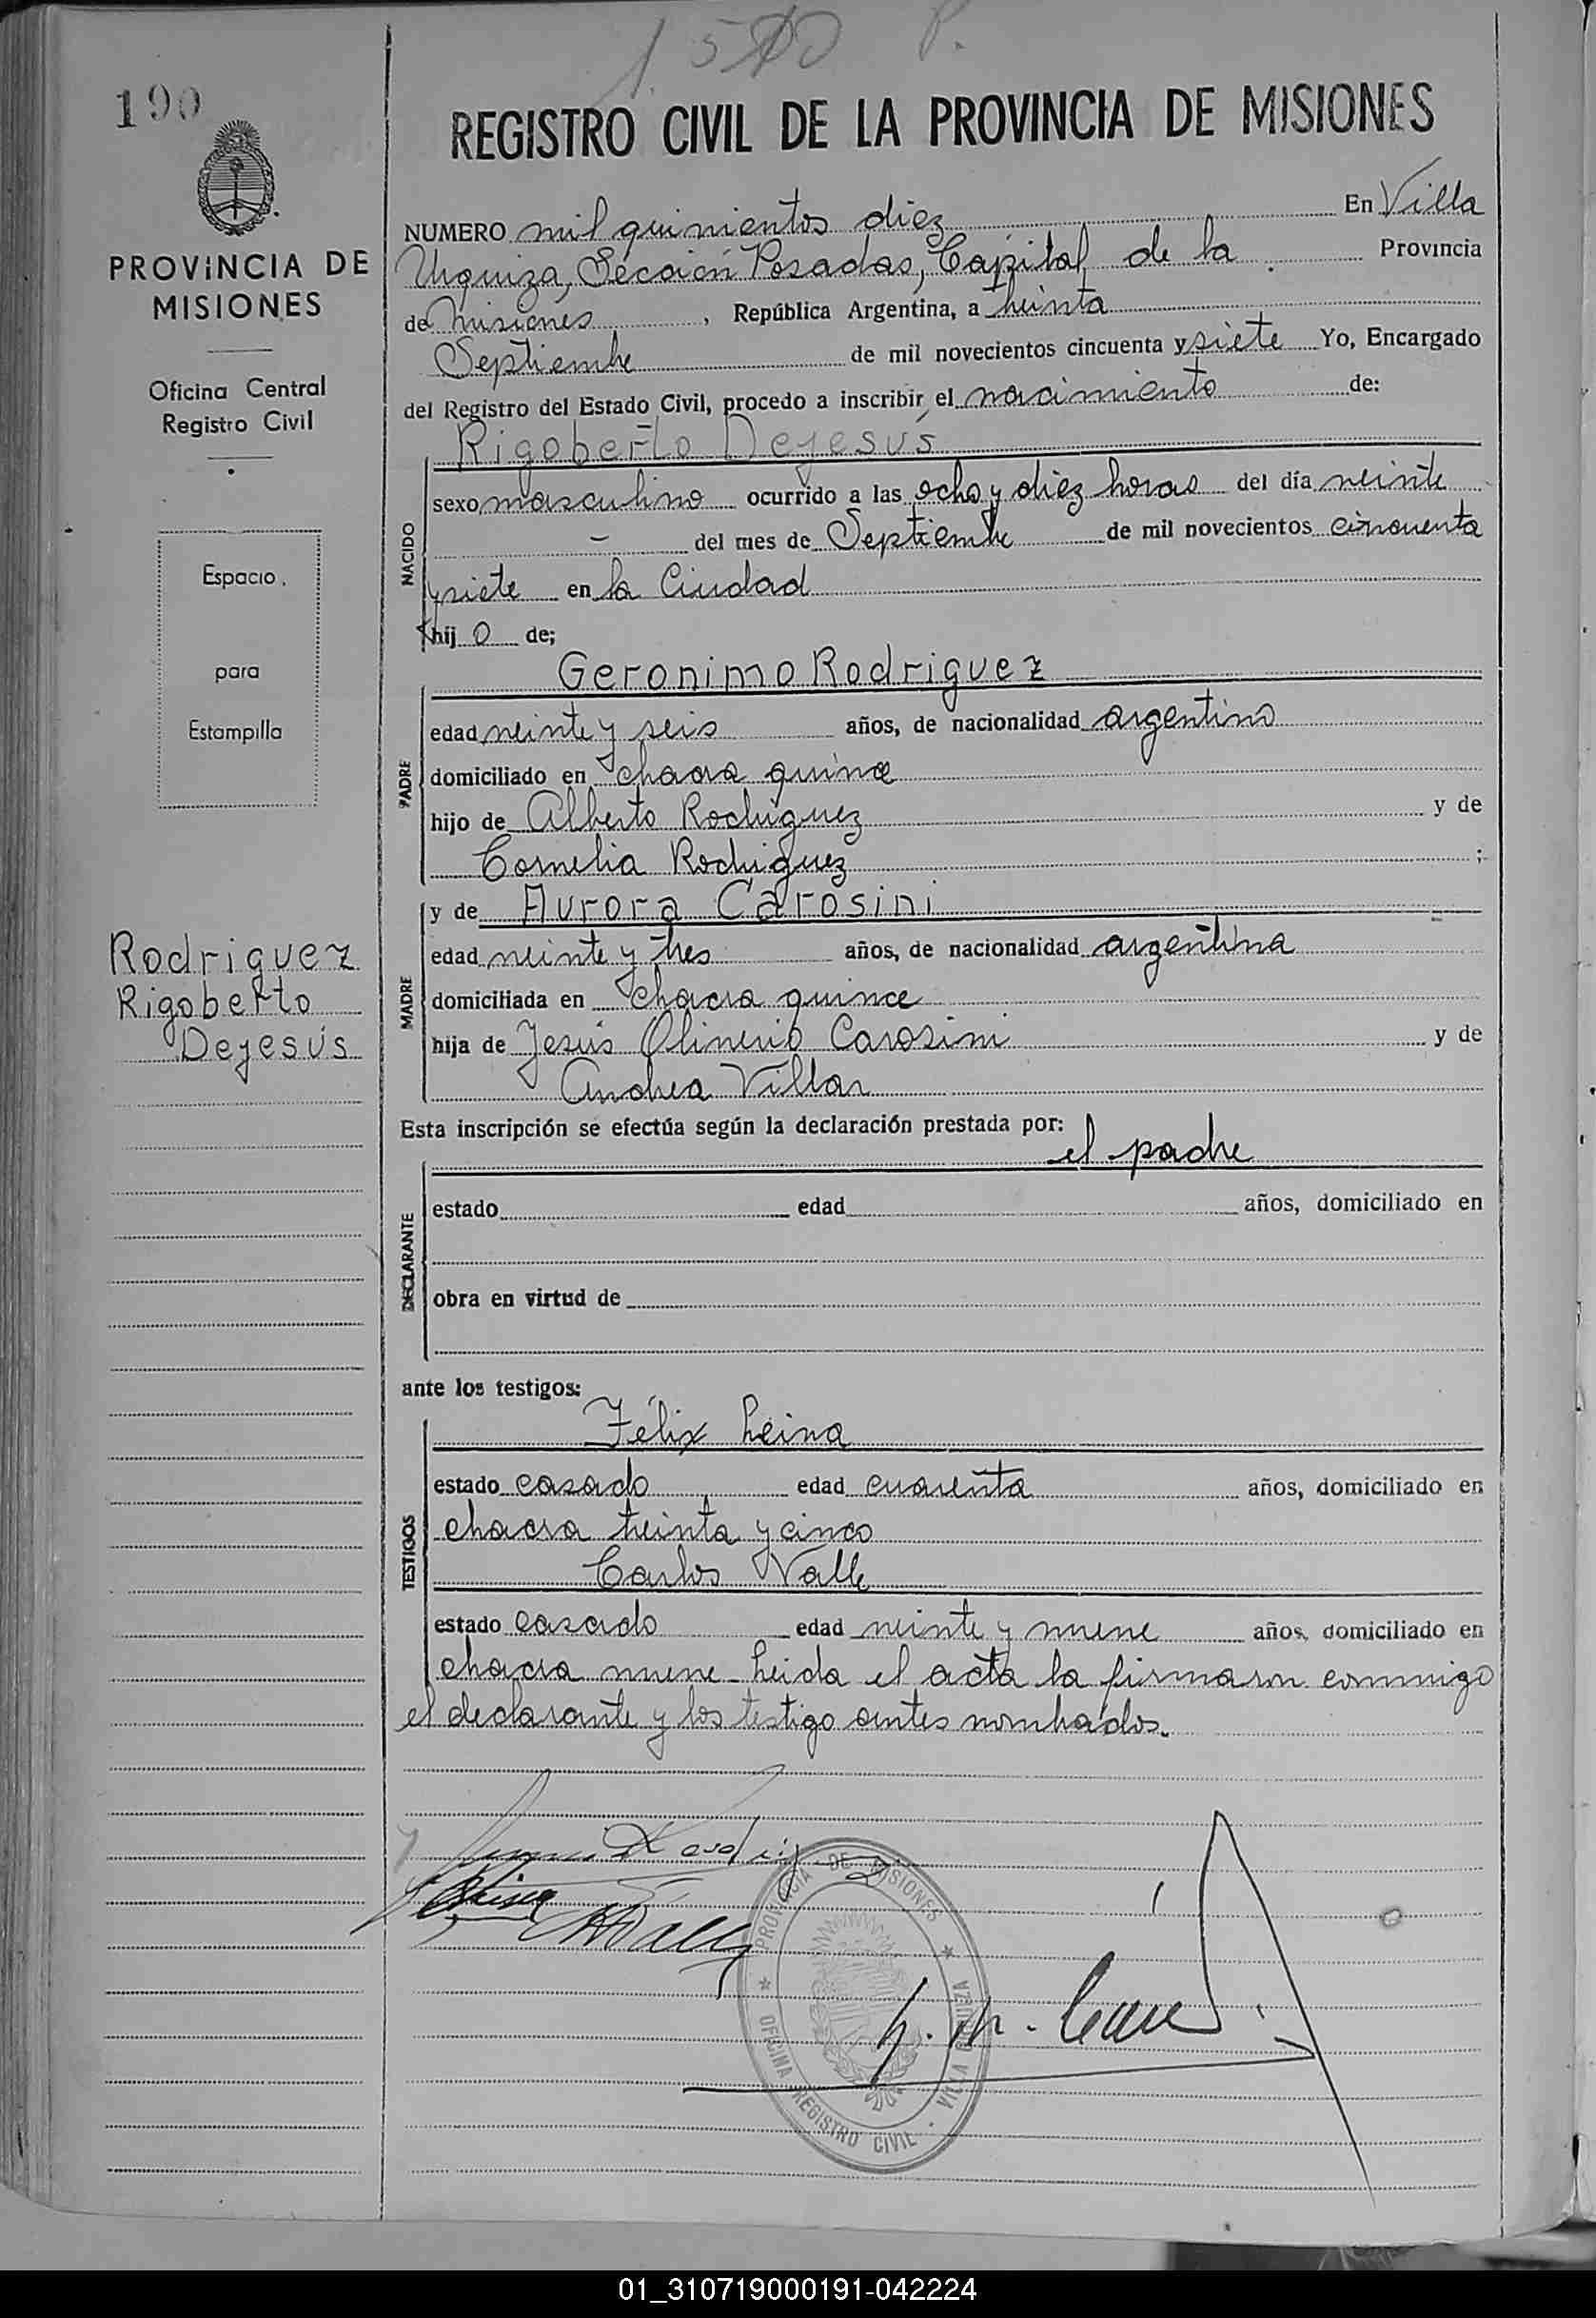 1510 P.
190
REGISTRO CIVIL DE LA PROVINCIA DE MISIONES
PROVINCIA DE
MISIONES
Oficina Central
Registro Civil
Espacio
para
Estampilla
Rodriguez
Rigoberto
Dejesús
NUMERO mil quinientos diez En Villa
Urquiza, Sección Posadas, Capital de la Provincia
de Misiones, República Argentina, a treinta
Septiembre de mil novecientos cincuenta y siete Yo, Encargado
del Registro del Estado Civil, procedo a inscribir el nacimiento de:
Rigoberto Dejesús
NACIDO
sexo masculino ocurrido a las ocho y diez horas del día veinte
- del mes de Septiembre de mil novecientos cincuenta
y siete en la Ciudad
hij o de;
Geronimo Rodriguez
PADRE
edad veinte y seis años, de nacionalidad argentino
domiciliado en chacra quince
hijo de Alberto Rodriguez y de
Cornelia Rodriguez ;
y de Aurora Carosini
MADRE
edad veinte y tres años, de nacionalidad argentina
domiciliada en chacra quince
hija de Jesús Oliverio Carosini y de
Andrea Villar
Esta inscripción se efectúa según la declaración prestada por:
el padre
DECLARANTE
estado edad años, domiciliado en
obra en virtud de
ante los testigos:
Félix Leiva
TESTIGOS
estado casado edad cuarenta años, domiciliado en
chacra treinta y cinco
Carlos Valle
estado casado edad veinte y nueve años, domiciliado en
chacra nueve - Leida el acta la firmaron conmigo
el declarante y los testigo antes nombrados.
PROVINCIA DE MISIONES
OFICINA REGISTRO CIVIL - VILLA URQUIZA
01_310719000191-042224